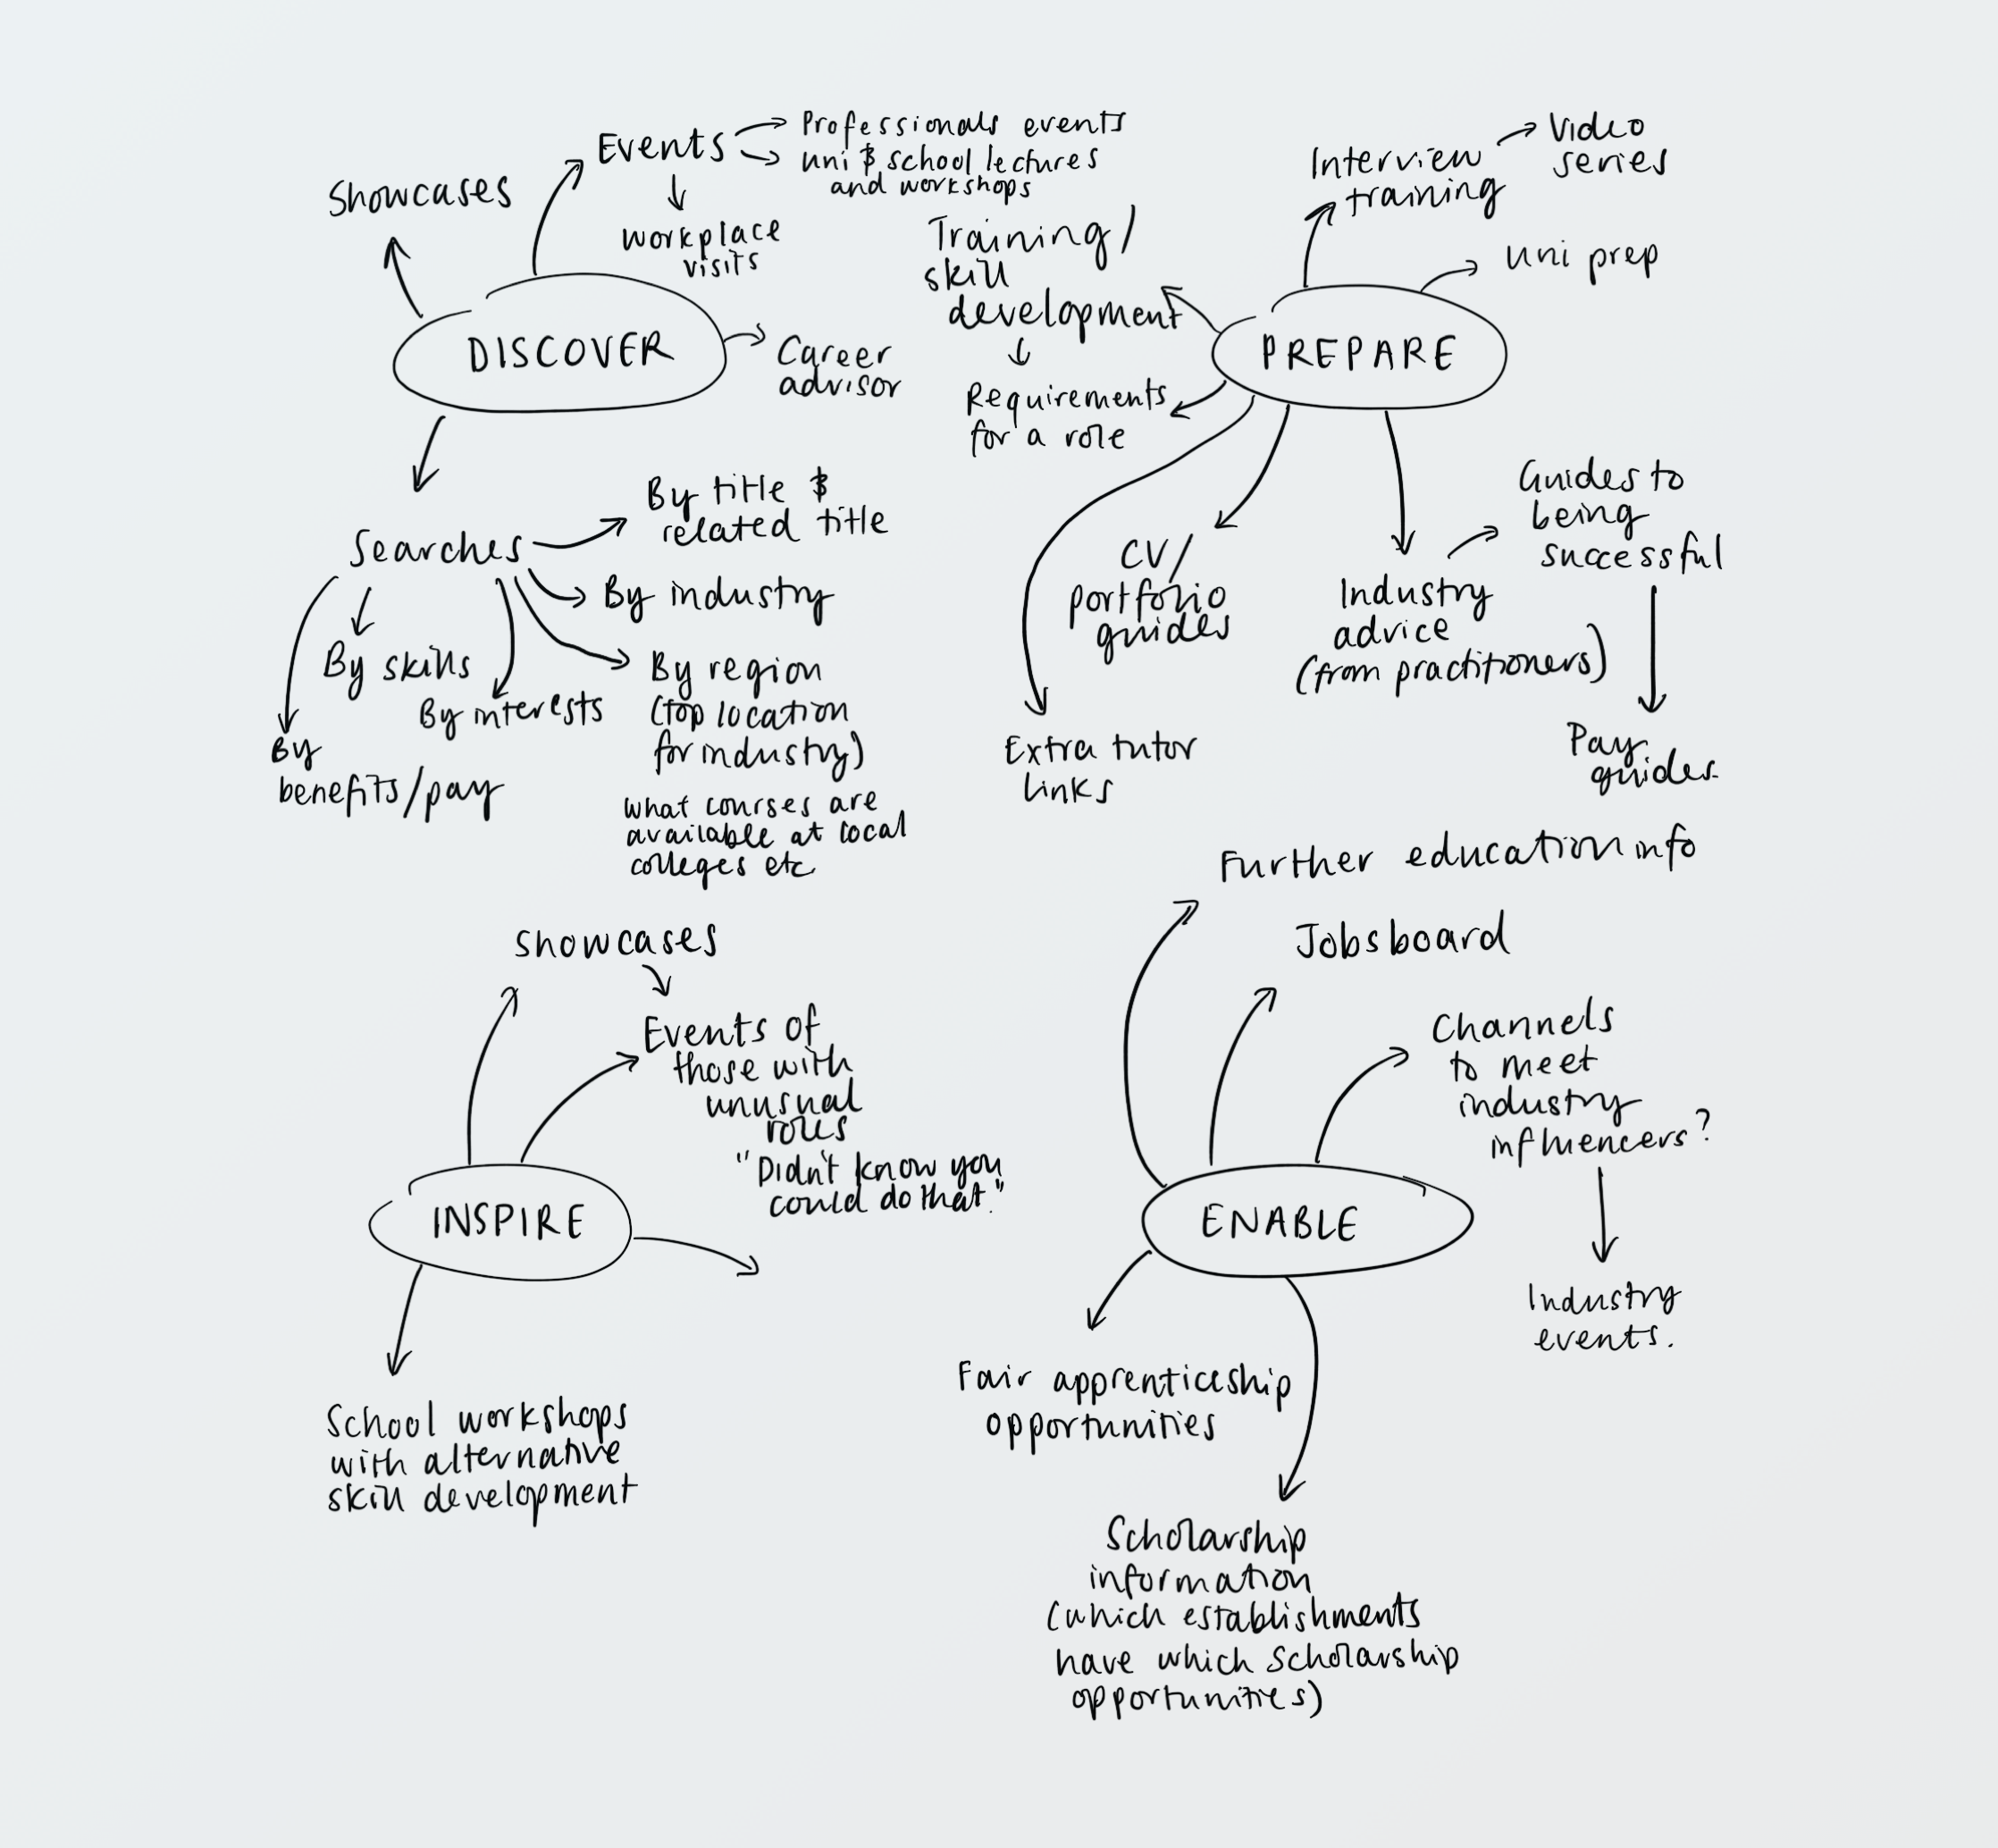 Showcases
Events
Professionals events
uni & school lectures
and workshops
workplace
visits
DISCOVER
Career
advisor
Searches
By title &
related title
By industry
By skills
By interests
By region
(top location
for industry)
what courses are
available at local
colleges etc
By
benefits/pay
Interview
training
Video
series
uni prep
Training/
skill
development
PREPARE
Requirements
for a role
CV/
portfolio
guides
Industry
advice
(from practitioners)
Guides to
being
successful
Pay
guides.
Extra tutor
links
showcases
Events of
those with
unusual
roles
"Didn't know you
could do that."
INSPIRE
School workshops
with alternative
skill development
Further education info
Jobsboard
Channels
to meet
industry
influencers?
ENABLE
Industry
events.
Fair apprenticeship
opportunities
Scholarship
information
(which establishments
have which scholarship
opportunities)